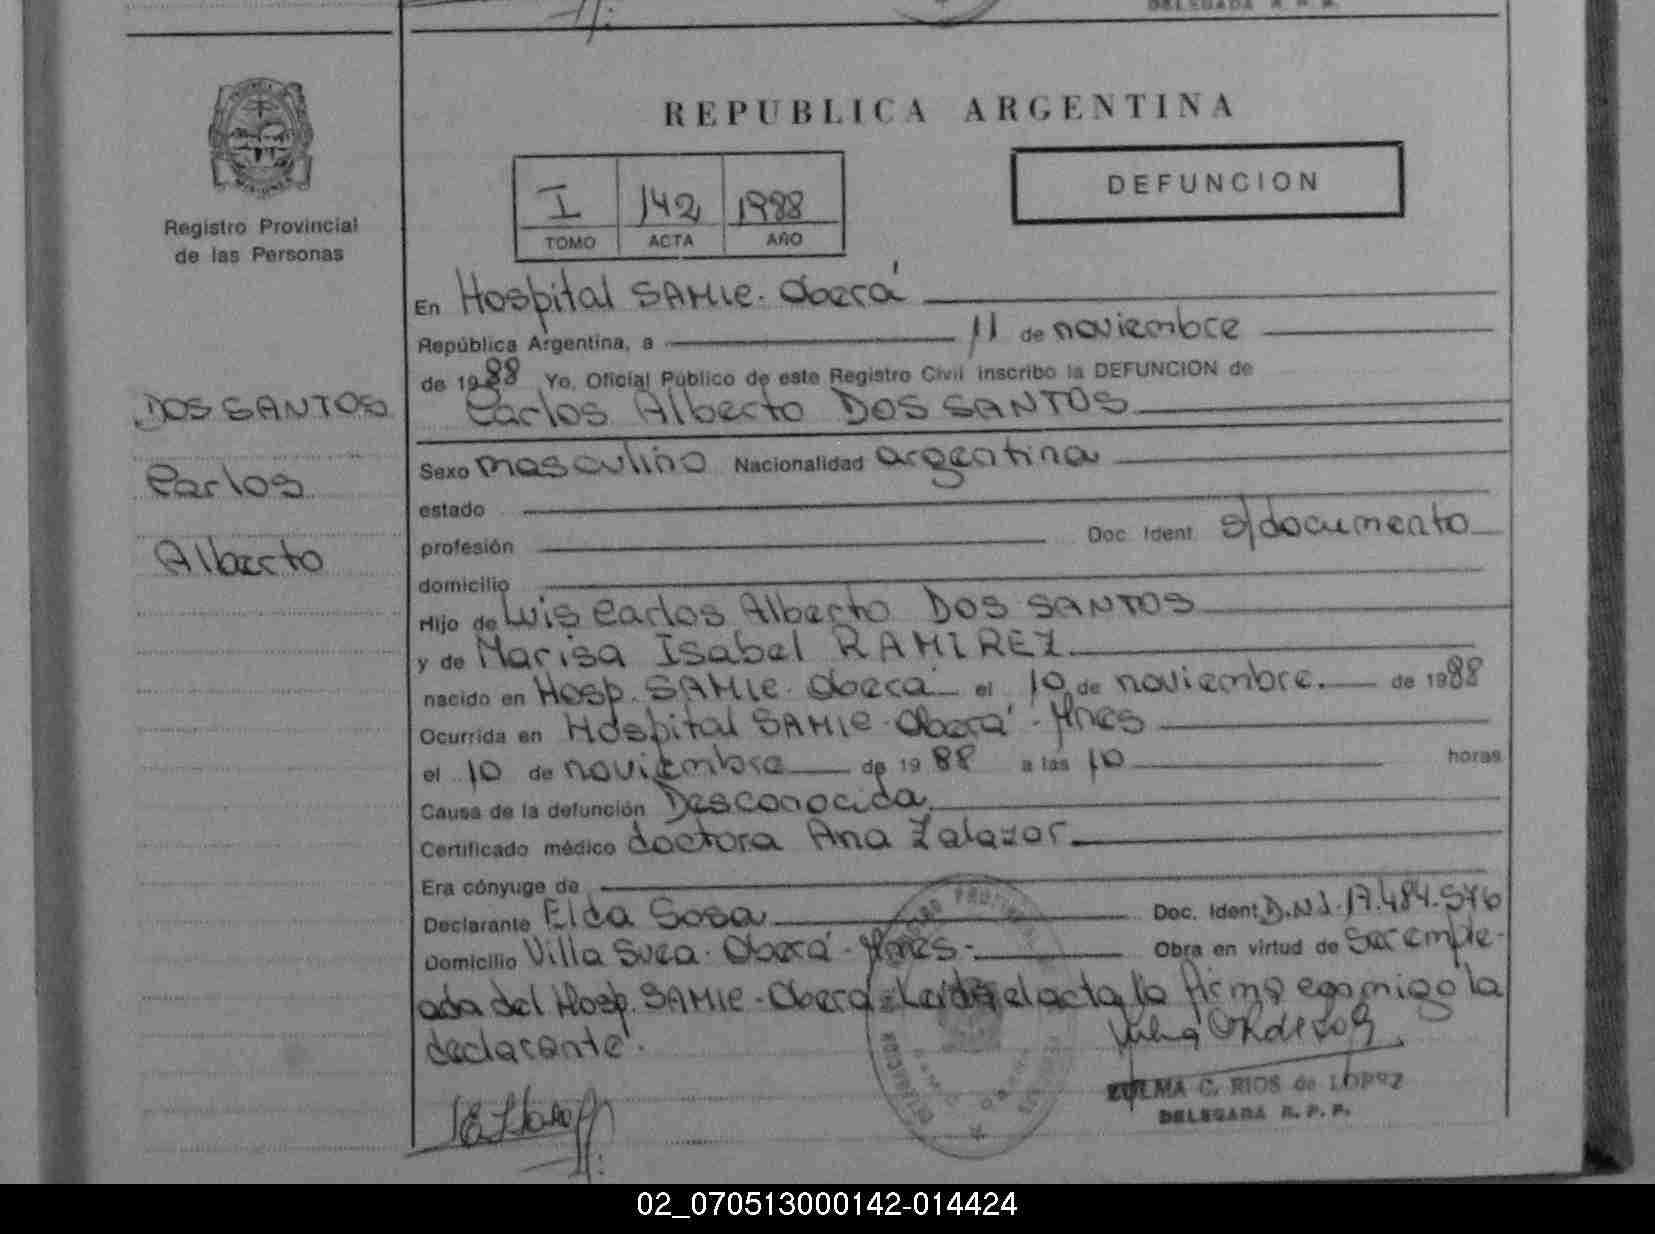 DELEGADA R. P. P.
REPUBLICA ARGENTINA
DEFUNCION
I 142 1988
TOMO ACTA AÑO
Registro Provincial
de las Personas
DOS SANTOS
Carlos
Alberto
En Hospital SAMIC. Oberá
República Argentina, a 11 de noviembre
de 1988 Yo, Oficial Público de este Registro Civil inscribo la DEFUNCION de
Carlos Alberto DOS SANTOS
Sexo masculino Nacionalidad argentina
estado
profesión Doc. Ident. s/documento
domicilio
Hijo de Luis Carlos Alberto DOS SANTOS
y de Marisa Isabel RAMIREZ
nacido en Hosp. SAMIC. Oberá el 10 de noviembre. de 1988
Ocurrida en Hospital SAMIC - Oberá - Mnes
el 10 de noviembre de 1988 a las 10 horas
Causa de la defunción Desconocida
Certificado médico doctora Ana Zalazar
Era cónyuge de
Declarante Elda Sosa Doc. Ident. D.N.I. 17.484.576
Domicilio Villa Svea. Oberá - Mnes - Obra en virtud de Ser emple-
ada del Hosp. SAMIC - Oberá - Leida el acta la firma conmigo la
declarante.
ZULMA C. RIOS de LOPEZ
DELEGADA R. P. P.
02_070513000142-014424